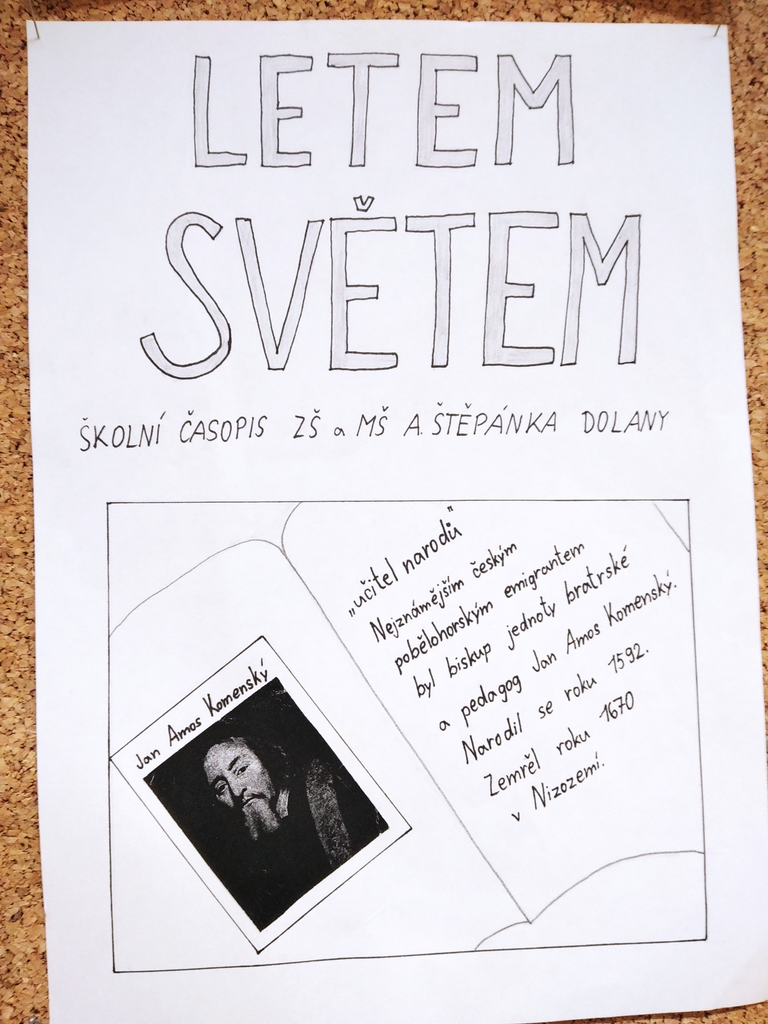 LETEM
SVĚTEM
ŠKOLNÍ ČASOPIS ZŠ a MŠ A. ŠTĚPÁNKA DOLANY
„učitel narodů“
Nejznámějším českým
pobělohorským emigrantem
byl biskup jednoty bratrské
a pedagog Jan Amos Komenský.
Narodil se roku 1592.
Zemřel roku 1670
v Nizozemí.
Jan Amos Komenský